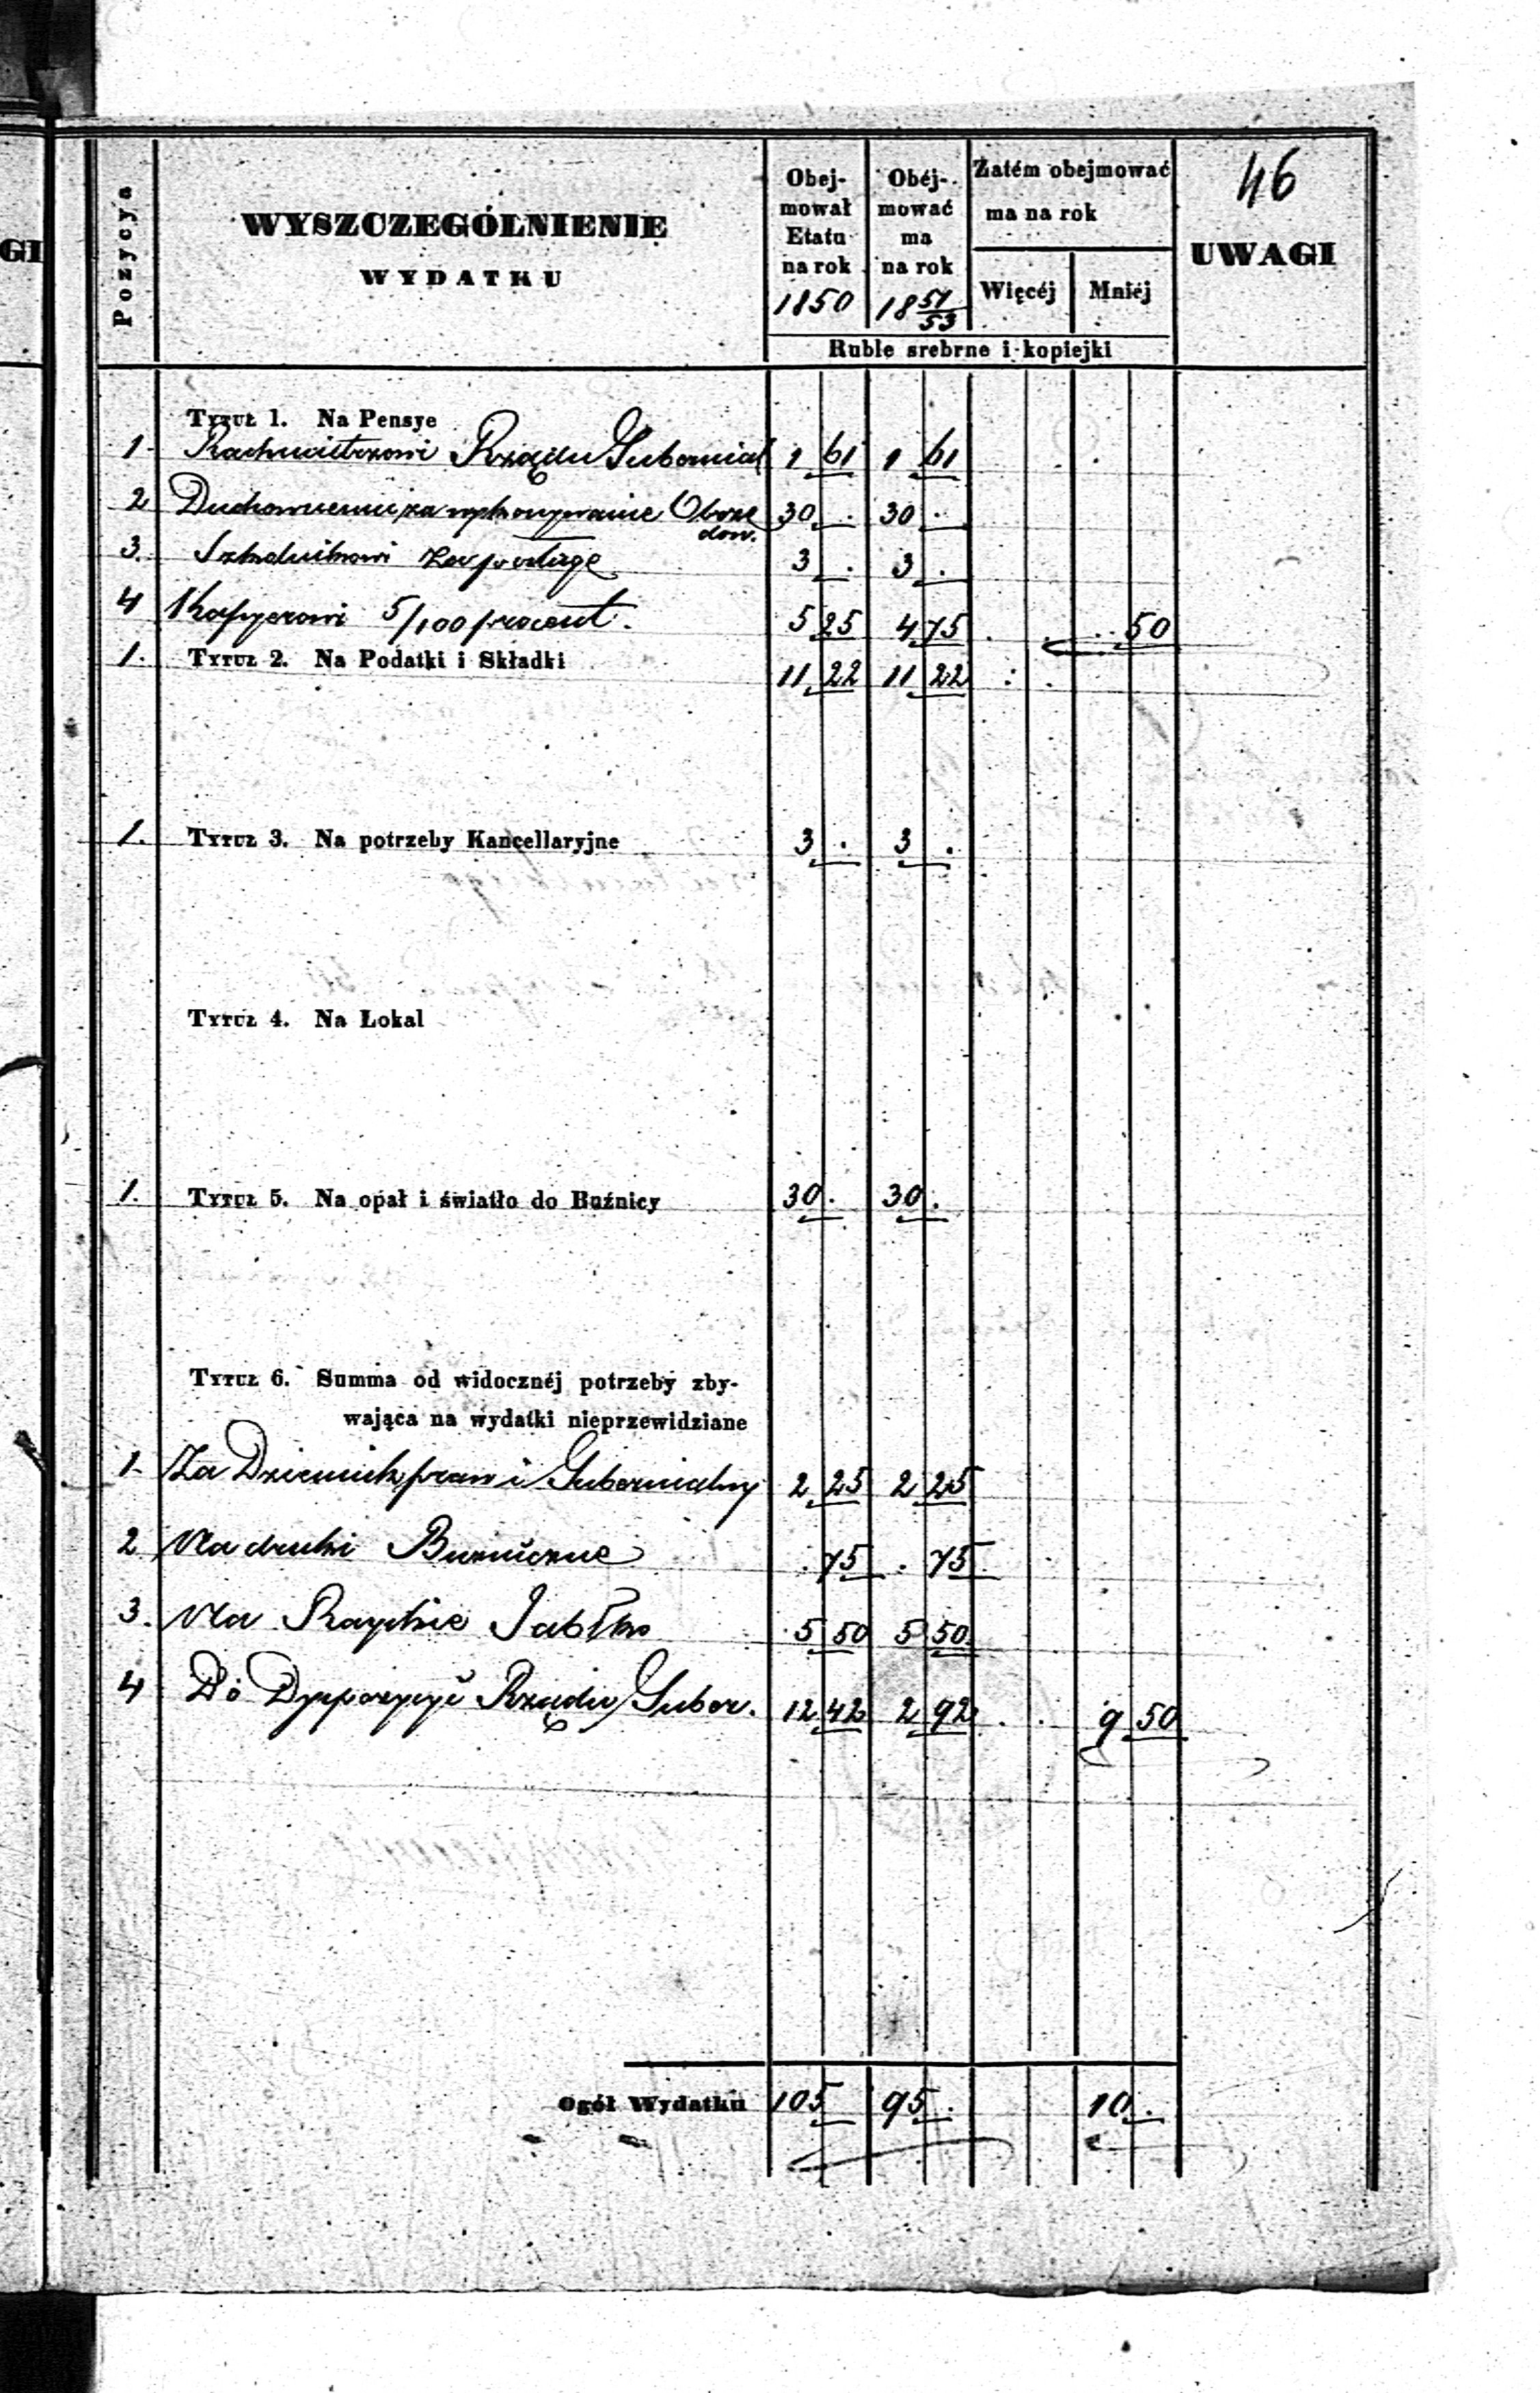 46
GI
Pozycya
WYSZCZEGÓLNIENIE
WYDATKU
Obejmował Etatu na rok 1850
Obéjmować ma na rok 18 51/53
Zatém obejmować ma na rok
Więcéj
Mniéj
UWAGI
Ruble srebrne i kopiejki
Tytuł 1. Na Pensye
1 Rachmistrzowi Rządu Gubernial 1 61 1 61
2 Duchownemu za wykonywanie Obrzędow. 30 . 30 .
3. Szkolnikowi za posługę 3 . 3 .
4 Kassyerowi 5/100 procent. 5 25 4 75 . . . 50
1. Tytuł 2. Na Podatki i Składki 11 22 11 22
1. Tytuł 3. Na potrzeby Kancellaryjne 3 . 3 .
Tytuł 4. Na Lokal
1. Tytuł 5. Na opał i światło do Buźnicy 30 . 30 .
Tytuł 6. Summa od widocznéj potrzeby zby-
wająca na wydatki nieprzewidziane
1. Za Dziennik praw i Gubernialny 2 25 2 25
2 Na druki Buźniczne . 75 . 75
3. Na Rayskie Jabłko 5 50 5 50
4 Do Dyspozycyi Rządu Guber. 12 42 2 92 . . 9 50
Ogół Wydatku 105 95 . 10 .